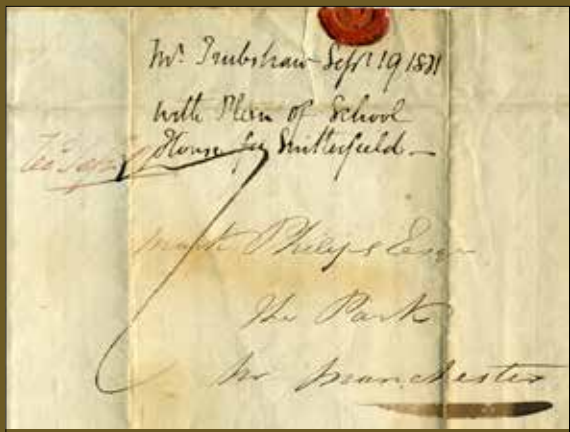 Mr Trubshaw Sept 19 1831
with Plan of School
House for Snitterfield
7
Mark Philips Esqr
The Park
Nr Manchester